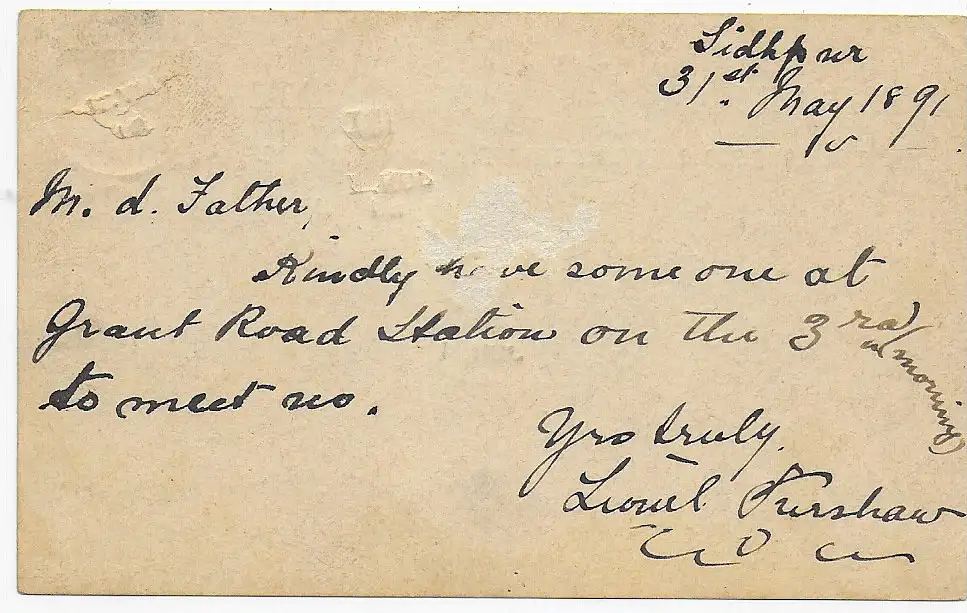 Sidhpur
31st. May 1891
M. d. Father,
Kindly have some one at
Grant Road Station on the 3rd
(morning)
to meet us.
Yrs truly,
Lionel